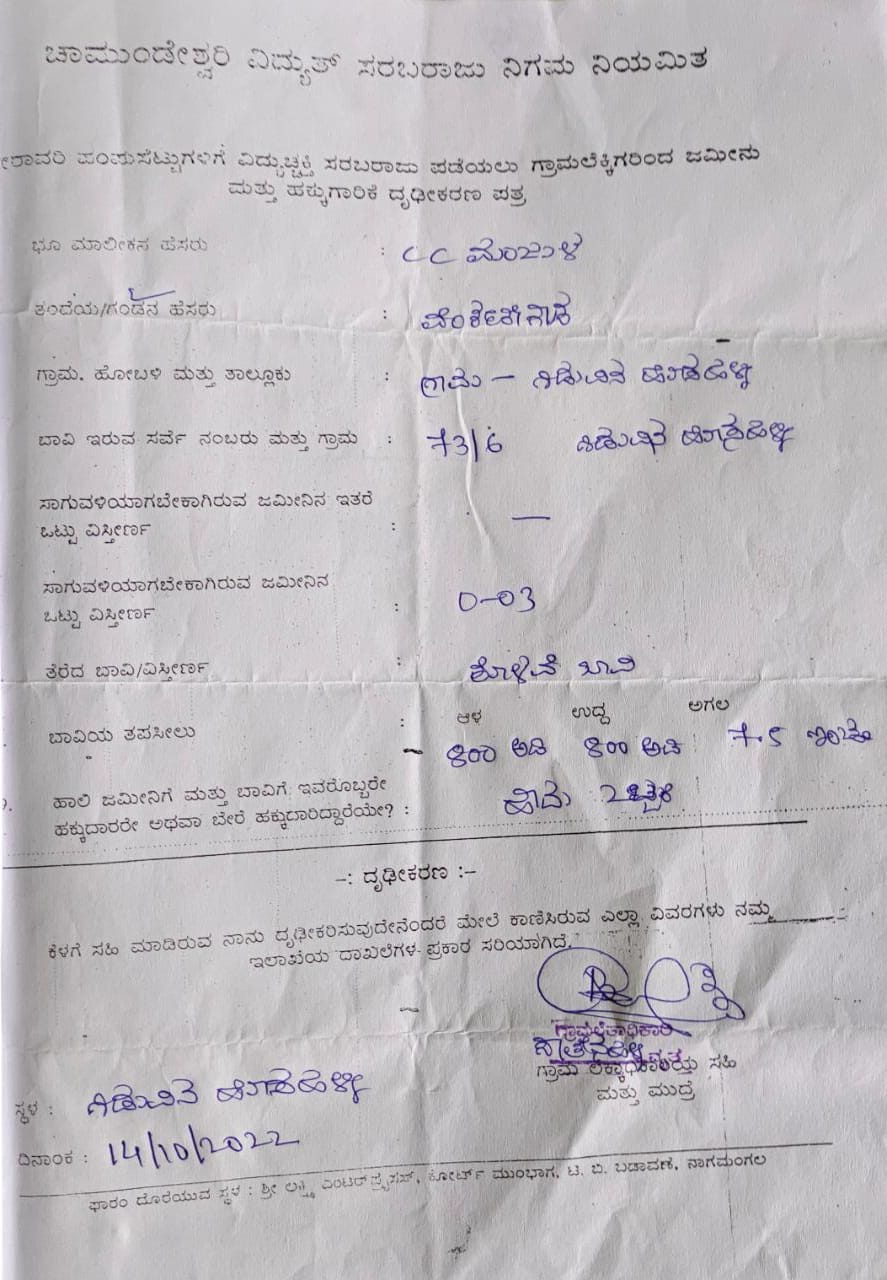 ಚಾಮುಂಡೇಶ್ವರಿ ವಿದ್ಯುತ್ ಸರಬರಾಜು ನಿಗಮ ನಿಯಮಿತ
ೀರಾವರಿ ಪಂಪುಸೆಟ್ಟುಗಳಿಗೆ ವಿದ್ಯುಚ್ಛಕ್ತಿ ಸರಬರಾಜು ಪಡೆಯಲು ಗ್ರಾಮಲೆಕ್ಕಿಗರಿಂದ ಜಮೀನು
ಮತ್ತು ಹಕ್ಕುಗಾರಿಕೆ ದೃಢೀಕರಣ ಪತ್ರ
ಭೂ ಮಾಲೀಕನ ಹೆಸರು : C C ಮಂಜುಳ
ತಂದೆಯ/ಗಂಡನ ಹೆಸರು : ವೆಂಕಟೇಗೌಡ
ಗ್ರಾಮ, ಹೋಬಳಿ ಮತ್ತು ತಾಲ್ಲೂಕು : ಗ್ರಾಮ –
ಬಾವಿ ಇರುವ ಸರ್ವೆ ನಂಬರು ಮತ್ತು ಗ್ರಾಮ : 73/6
ಸಾಗುವಳಿಯಾಗಬೇಕಾಗಿರುವ ಜಮೀನಿನ ಇತರೆ
ಒಟ್ಟು ವಿಸ್ತೀರ್ಣ : —
ಸಾಗುವಳಿಯಾಗಬೇಕಾಗಿರುವ ಜಮೀನಿನ
ಒಟ್ಟು ವಿಸ್ತೀರ್ಣ : 0-03
ತೆರೆದ ಬಾವಿ/ವಿಸ್ತೀರ್ಣ : ಕೊಳವೆ ಬಾವಿ
ಆಳ ಉದ್ದ ಅಗಲ
ಬಾವಿಯ ತಪಸೀಲು : 800 ಅಡಿ 800 ಅಡಿ 7.5 ಇಂಚು
9. ಹಾಲಿ ಜಮೀನಿಗೆ ಮತ್ತು ಬಾವಿಗೆ ಇವರೊಬ್ಬರೇ
ಹಕ್ಕುದಾರರೇ ಅಥವಾ ಬೇರೆ ಹಕ್ಕುದಾರಿದ್ದಾರೆಯೇ? :
-: ದೃಢೀಕರಣ :-
ಕೆಳಗೆ ಸಹಿ ಮಾಡಿರುವ ನಾನು ದೃಢೀಕರಿಸುವುದೇನೆಂದರೆ ಮೇಲೆ ಕಾಣಿಸಿರುವ ಎಲ್ಲಾ ವಿವರಗಳು ನಮ್ಮ
ಇಲಾಖೆಯ ದಾಖಲೆಗಳ ಪ್ರಕಾರ ಸರಿಯಾಗಿದೆ.
ಗ್ರಾಮಲೆಕ್ಕಾಧಿಕಾರಿ
ಗ್ರಾಮ ಲೆಕ್ಕಾಧಿಕಾರಿಯ ಸಹಿ
ಮತ್ತು ಮುದ್ರೆ
ಸ್ಥಳ :
ದಿನಾಂಕ : 14/10/2022
ಫಾರಂ ದೊರೆಯುವ ಸ್ಥಳ : ಶ್ರೀ ಲಕ್ಷ್ಮಿ ಎಂಟರ್‌ಪ್ರೈಸಸ್, ಕೋರ್ಟ್ ಮುಂಭಾಗ, ಟಿ. ಬಿ. ಬಡಾವಣೆ, ನಾಗಮಂಗಲ